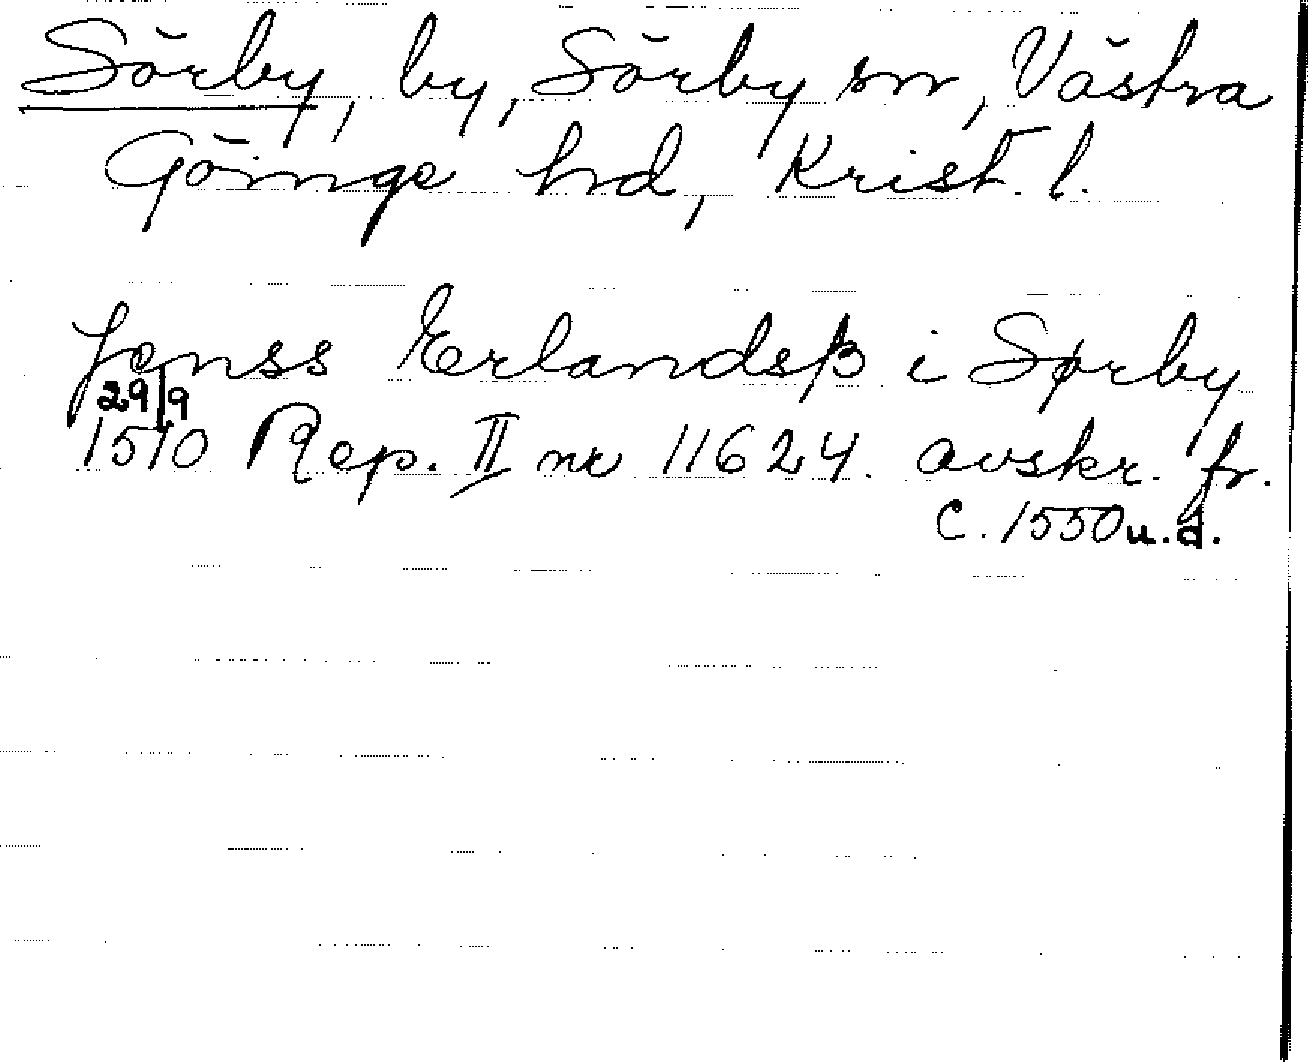 Sörby, by, Sörby sn, Västra
Göinge hd, Krist. l.
Jenss Erlandsß i Sørby
29/9
1510 Rep. II nr 11624. avskr. fr.
c. 1550 u. d.